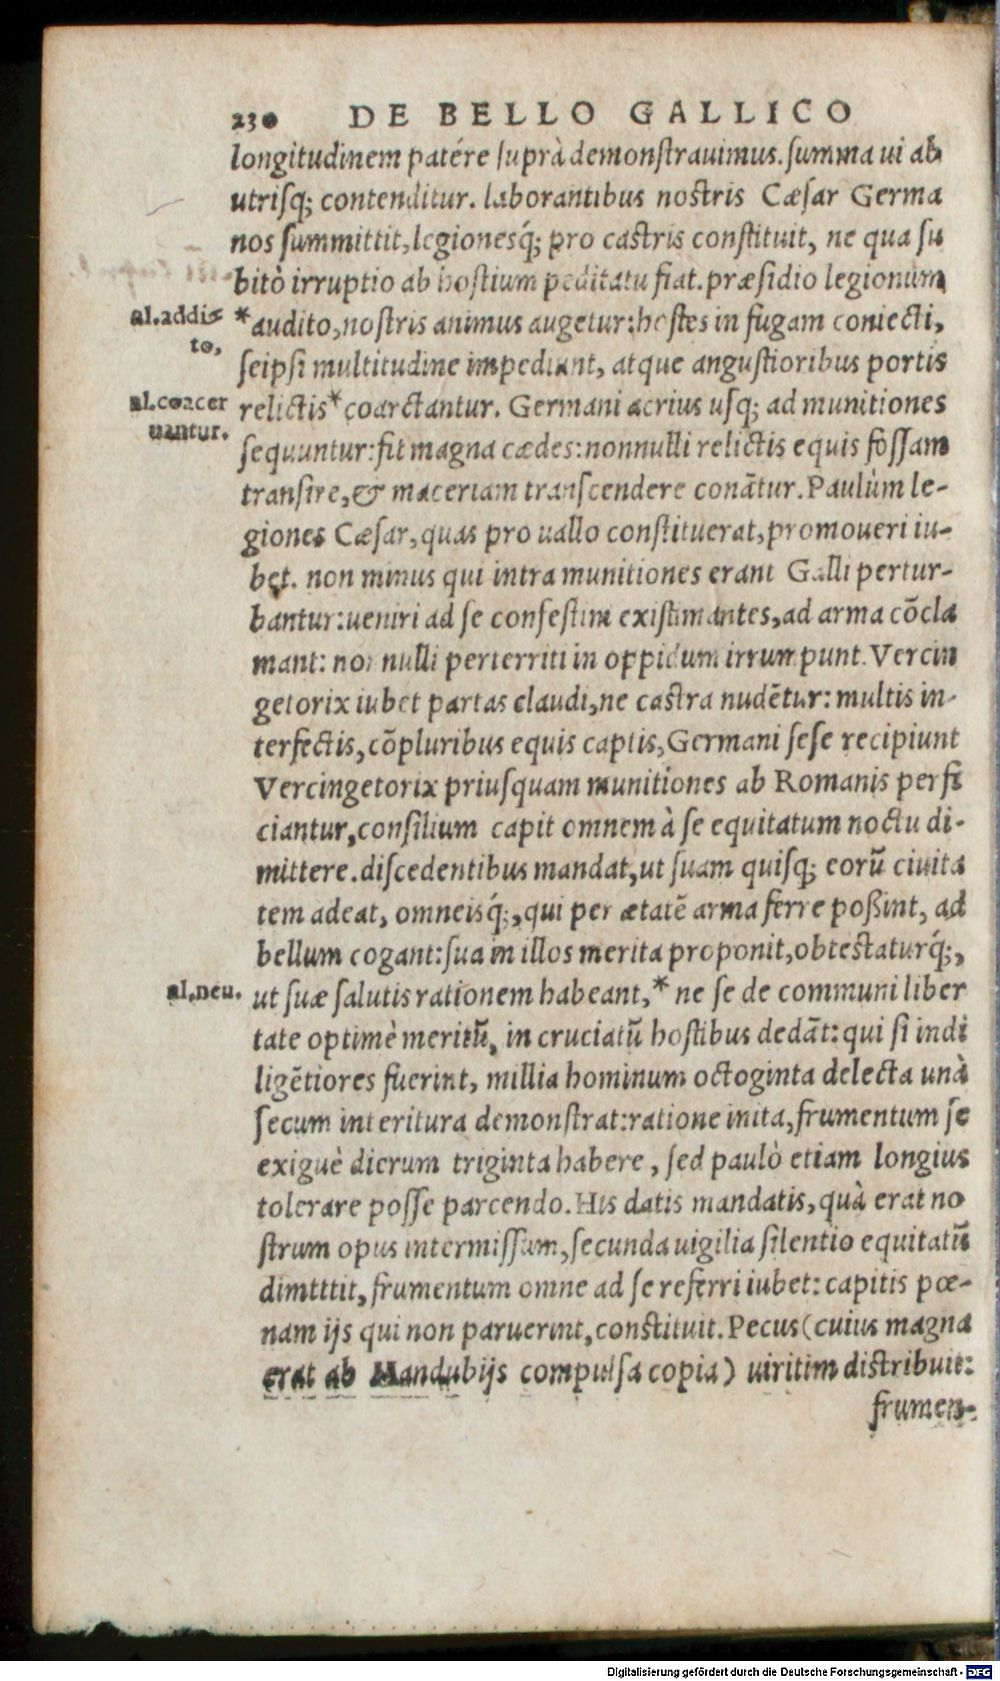 230 DE BELLO GALLICO
longitudinem patére suprà demonstrauimus. summa ui ab
utrisq; contenditur. laborantibus nostris Cæsar Germa
nos summittit, legionesq́; pro castris constituit, ne qua su
bitò irruptio ab hostium peditatu fiat. præsidio legionum
al. addi-
to,
*audito, nostris animus augetur: hostes in fugam coniecti,
seipsi multitudine impediunt, atque angustioribus portis
al. coacer
uantur.
relictis* coarctantur. Germani acrius usq; ad munitiones
sequuntur: fit magna cædes: nonnulli relictis equis fossam
transire, & maceriam transcendere conãtur. Paulùm le-
giones Cæsar, quas pro uallo constituerat, promoueri iu-
bet. non minus qui intra munitiones erant Galli pertur-
bantur: ueniri ad se confestim existimantes, ad arma cõcla
mant: nonnulli perterriti in oppidum irrumpunt. Vercin
getorix iubet partas claudi, ne castra nudẽtur: multis in-
terfectis, cõpluribus equis captis, Germani sese recipiunt
Vercingetorix priusquam munitiones ab Romanis perfi
ciantur, consilium capit omnem à se equitatum noctu di-
mittere. discedentibus mandat, ut suam quisq; eorũ ciuita
tem adeat, omneisq́;, qui per ætatẽ arma ferre poßint, ad
bellum cogant: sua in illos merita proponit, obtestaturq́;,
al. neu.
ut suæ salutis rationem habeant,* ne se de communi liber
tate optimè meritũ, in cruciatũ hostibus dedãt: qui si indi
ligẽtiores fuerint, millia hominum octoginta delecta unà
secum interitura demonstrat: ratione inita, frumentum se
exiguè dierum triginta habere, sed paulò etiam longius
tolerare posse parcendo. His datis mandatis, quà erat no
strum opus intermissum, secunda uigilia silentio equitatũ
dimtttit, frumentum omne ad se referri iubet: capitis pœ-
nam ijs qui non paruerint, constituit. Pecus (cuius magna
erat ab Mandubijs compulsa copia) uiritim distribuit:
frumen-
Digitalisierung gefördert durch die Deutsche Forschungsgemeinschaft - DFG